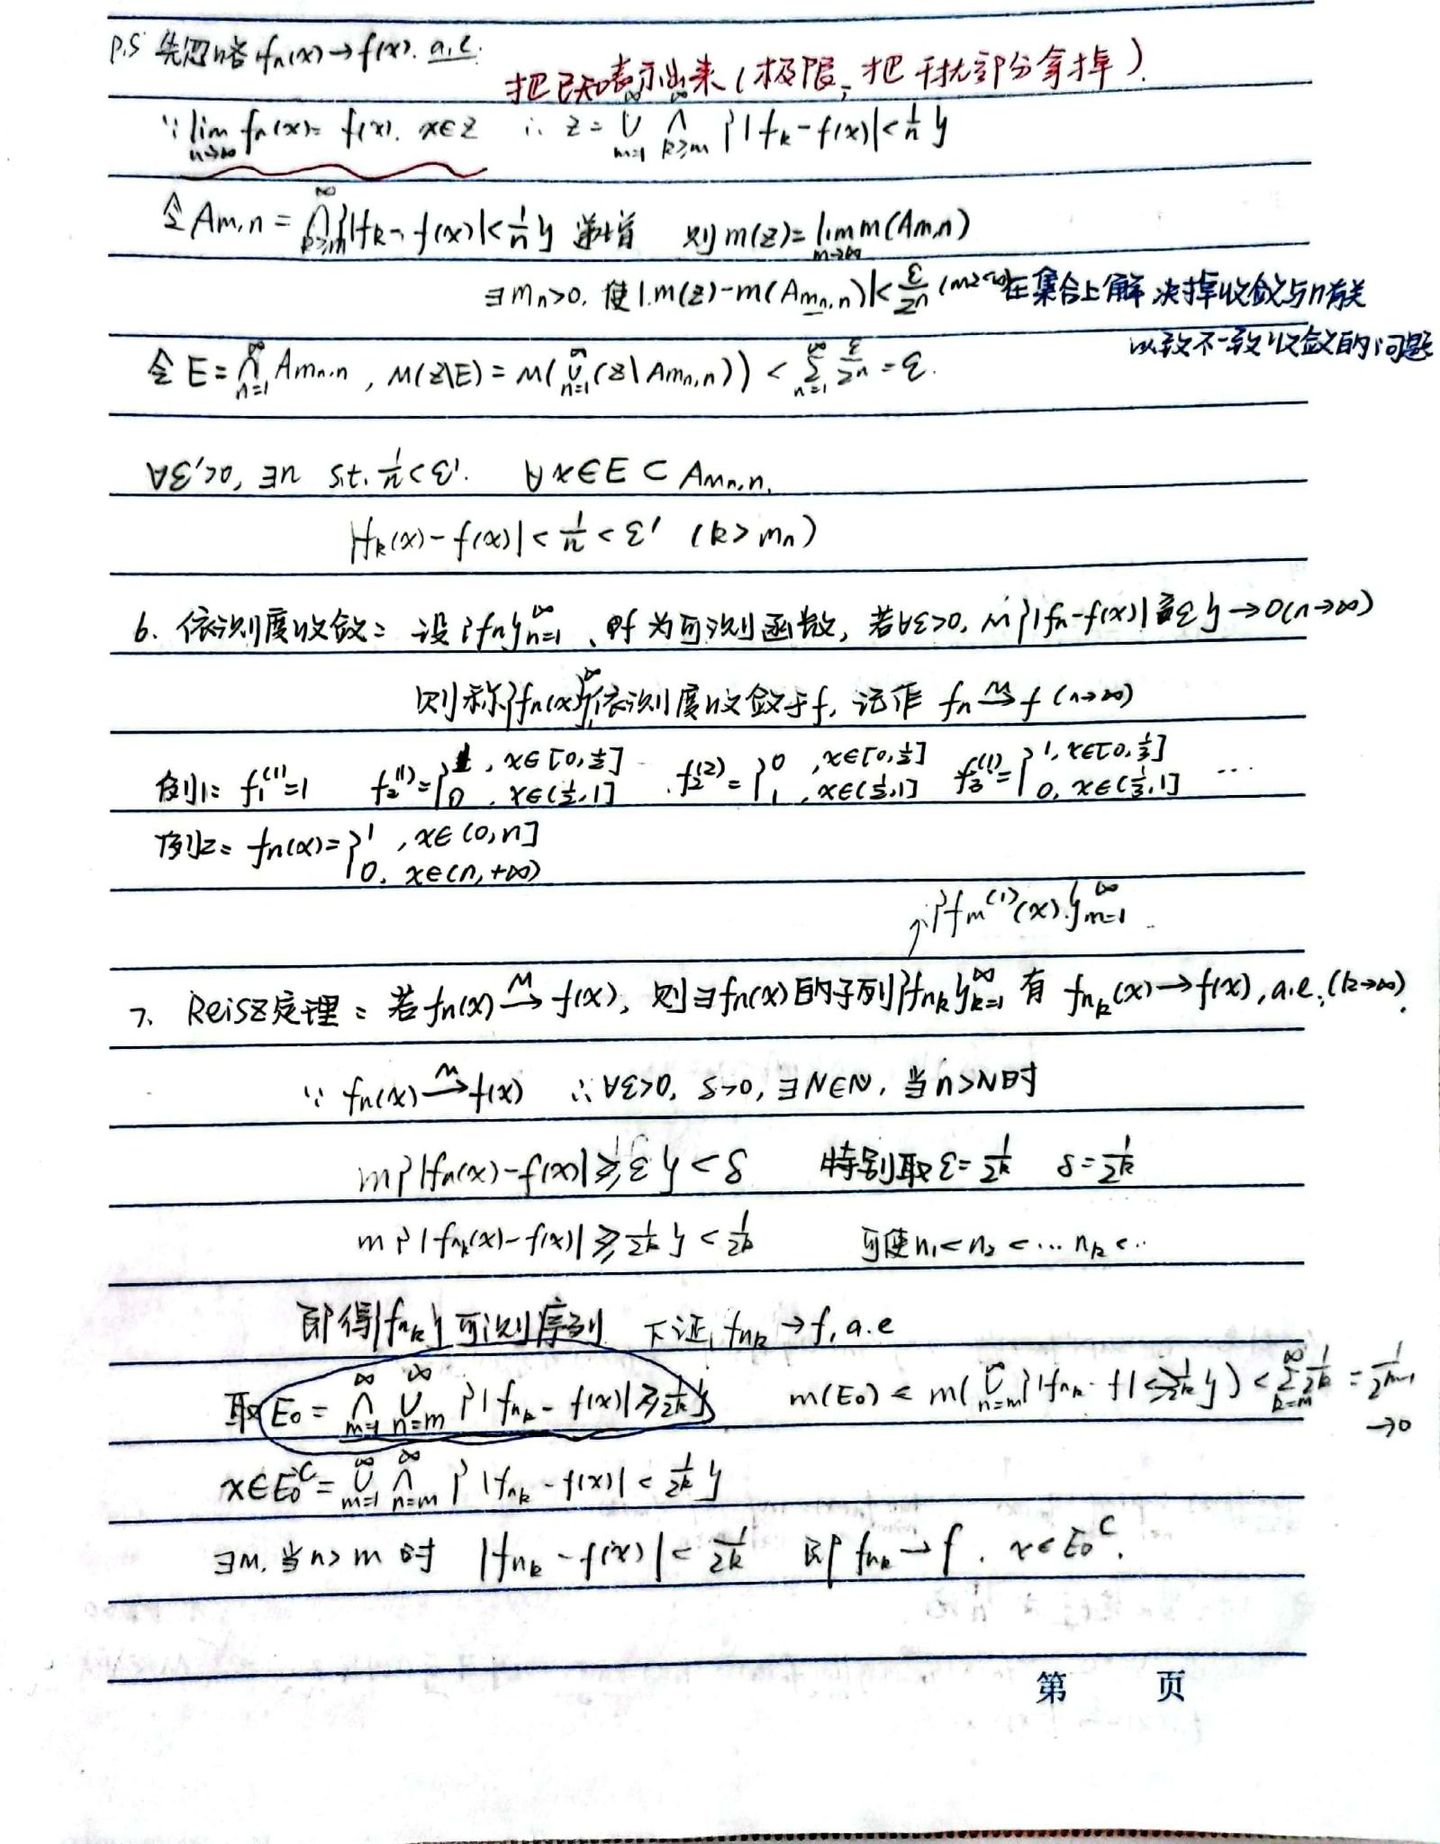 P.S 先忽略 fn(x)→f(x). a.e.
把已知表示出来(极限,把干扰部分拿掉).
∵ lim_{n→∞} fn(x)= f(x). x∈Z ∴ Z = ∪_{m=1}^∞ ∩_{k≥m}^∞ {|fk-f(x)|<1/n}
令 Am,n = ∩_{k≥m}^∞ {|fk-f(x)|<1/n} 递增 则 m(Z)= lim_{m→∞} m(Am,n)
∃mn>0, 使|m(Z)-m(A_{mn,n})|<ε/2^n (mZ<∞) 在集合上解决掉收敛与n有关
以致不一致收敛的问题
令 E = ∩_{n=1}^∞ A_{mn,n} , M(Z\E) = M(∪_{n=1}^∞ (Z\A_{mn,n})) < Σ_{n=1}^∞ ε/2^n = ε.
∀ε'>0, ∃n s.t. 1/n<ε'. ∀x∈E⊂A_{mn,n}.
|fk(x)-f(x)|<1/n<ε' (k>mn)
6. 依测度收敛: 设{fn}_{n=1}^∞、f 为可测函数, 若∀ε>0, m{|fn-f(x)|≥ε}→0(n→∞)
则称{fn(x)}_1^∞依测度收敛于f, 记作 fn \xrightarrow{M} f (n→∞)
例1: f1^(1)=1 f2^(1)={1, x∈[0,1/2] 0, x∈(1/2,1] . f2^(2)={0, x∈[0,1/2] 1, x∈(1/2,1] f3^(1)={1, x∈[0,1/3] 0, x∈(1/3,1] ...
例2: fn(x)={1, x∈(0,n] 0, x∈(n,+∞)
↗{fm^(1)(x)}_{m=1}^∞
7. Reisz定理: 若fn(x) \xrightarrow{M} f(x), 则∃fn(x)的子列{f_{nk}}_{k=1}^∞ 有 f_{nk}(x)→f(x), a.e.(k→∞).
∵ fn(x) \xrightarrow{M} f(x) ∴ ∀ε>0, δ>0, ∃N∈ℕ, 当n>N时
m{|fn(x)-f(x)|≥ε}<δ 特别取ε=1/2^k δ=1/2^k
m{|f_{nk}(x)-f(x)|≥1/2^k}<1/2^k 可使n1<n2<...nk<..
即得{f_{nk}}可测序列 下证, f_{nk}→f, a.e
取E0 = ∩_{m=1}^∞ ∪_{n=m}^∞ {|f_{nk}-f(x)|≥1/2^k} m(E0) < m(∪_{n=m}^∞ {|f_{nk}-f|≥1/2^k}) < Σ_{k=m}^∞ 1/2^k = 1/2^{m-1} →0
x∈E0^C = ∪_{m=1}^∞ ∩_{n=m}^∞ {|f_{nk}-f(x)|<1/2^k}
∃m, 当n>m时 |f_{nk}-f(x)|<1/2^k 即 f_{nk}→f. x∈E0^C.
第 页